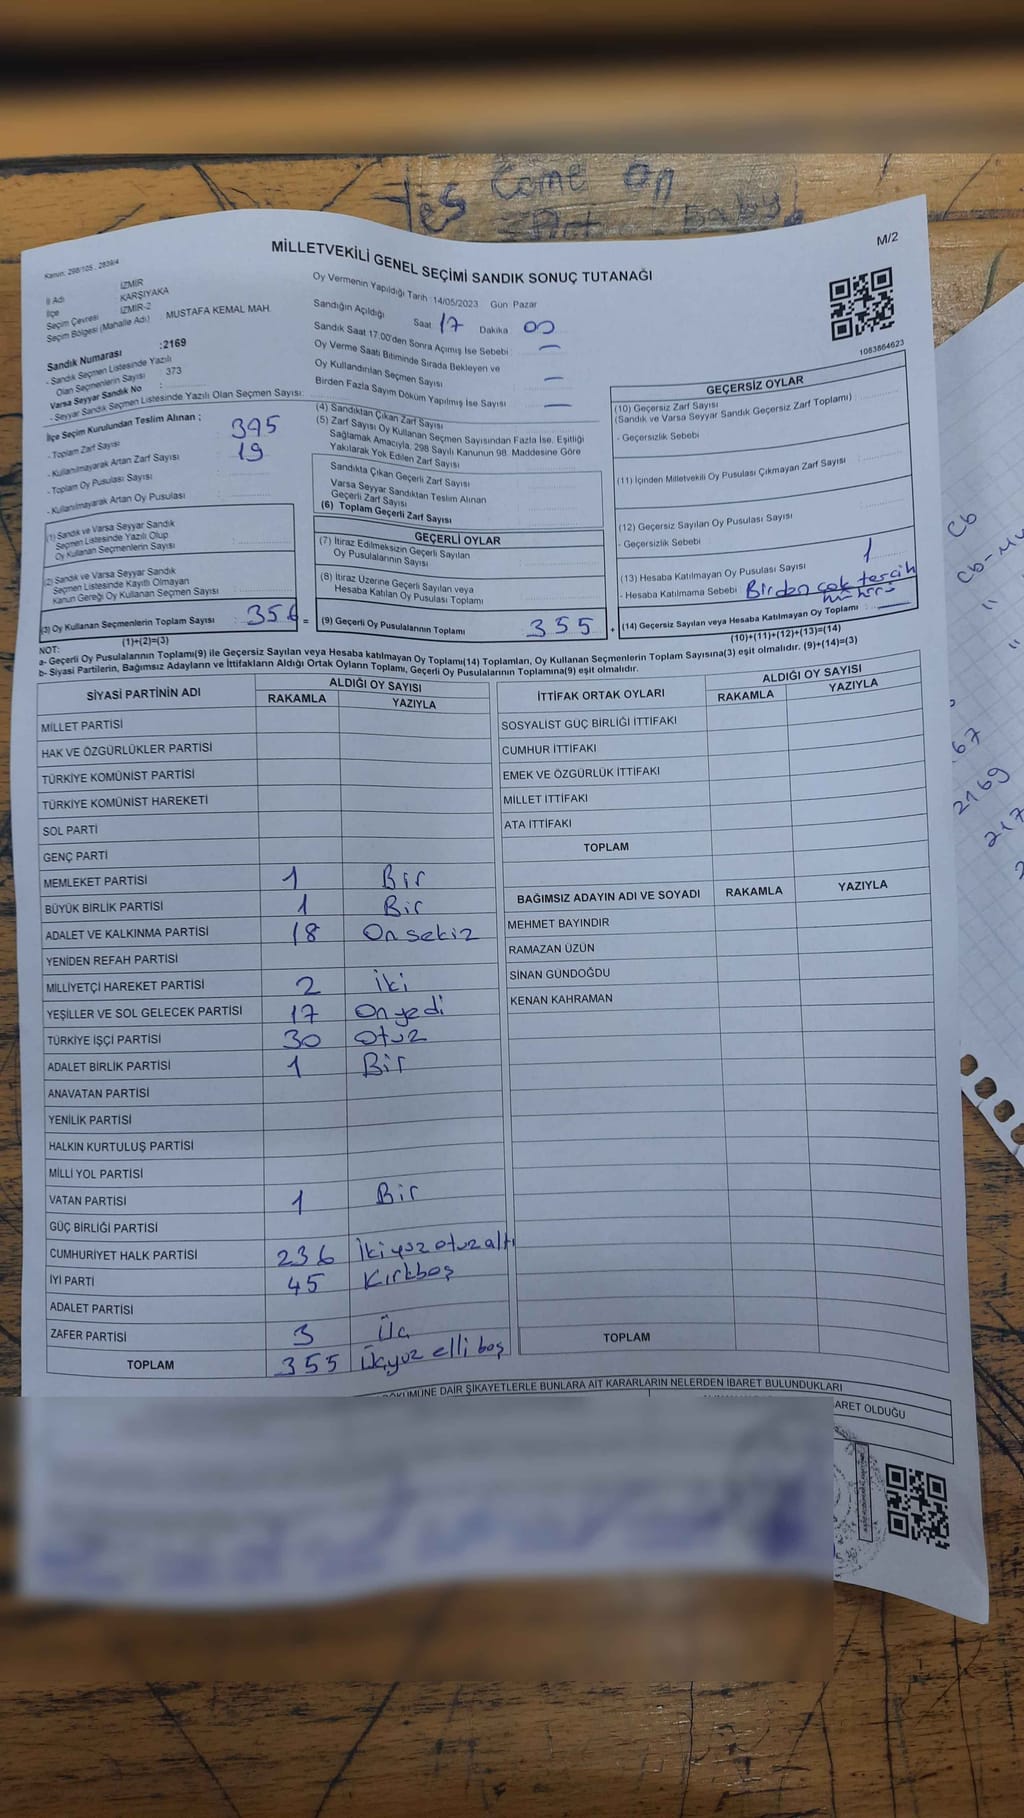 Yes Come On
Baby
M/2
MİLLETVEKİLİ GENEL SEÇİMİ SANDIK SONUÇ TUTANAĞI
Kanun: 298/105 , 2839/4
İl Adı İZMİR
İlçe KARŞIYAKA
Seçim Çevresi İZMİR-2
Seçim Bölgesi (Mahalle Adı) MUSTAFA KEMAL MAH.
Sandık Numarası :2169
- Sandık Seçmen Listesinde Yazılı
Olan Seçmenlerin Sayısı : 373
Varsa Seyyar Sandık No :
- Seyyar Sandık Seçmen Listesinde Yazılı Olan Seçmen Sayısı:
İlçe Seçim Kurulundan Teslim Alınan ;
- Toplam Zarf Sayısı : 395
- Kullanılmayarak Artan Zarf Sayısı : 19
- Toplam Oy Pusulası Sayısı :
- Kullanılmayarak Artan Oy Pusulası :
(1) Sandık ve Varsa Seyyar Sandık
Seçmen Listesinde Yazılı Olup
Oy Kullanan Seçmenlerin Sayısı :
(2) Sandık ve Varsa Seyyar Sandık
Seçmen Listesinde Kayıtlı Olmayan
Kanun Gereği Oy Kullanan Seçmen Sayısı :
(3) Oy Kullanan Seçmenlerin Toplam Sayısı : 356 =
(1)+(2)=(3)
Oy Vermenin Yapıldığı Tarih 14/05/2023 Gün Pazar
Sandığın Açıldığı Saat 17 Dakika 00
Sandık Saat 17.00'den Sonra Açımış İse Sebebi : —
Oy Verme Saati Bitiminde Sırada Bekleyen ve
Oy Kullandırılan Seçmen Sayısı —
Birden Fazla Sayım Döküm Yapılmış İse Sayısı —
(4) Sandıktan Çıkan Zarf Sayısı
(5) Zarf Sayısı Oy Kullanan Seçmen Sayısından Fazla İse, Eşitliği
Sağlamak Amacıyla, 298 Sayılı Kanunun 98. Maddesine Göre
Yakılarak Yok Edilen Zarf Sayısı
Sandıkta Çıkan Geçerli Zarf Sayısı
Varsa Seyyar Sandıktan Teslim Alınan
Geçerli Zarf Sayısı
(6) Toplam Geçerli Zarf Sayısı
GEÇERLİ OYLAR
(7) İtiraz Edilmeksizin Geçerli Sayılan
Oy Pusulalarının Sayısı :
(8) İtiraz Üzerine Geçerli Sayılan veya
Hesaba Katılan Oy Pusulası Toplamı
(9) Geçerli Oy Pusulalarının Toplamı 355 +
1083864623
GEÇERSİZ OYLAR
(10) Geçersiz Zarf Sayısı
(Sandık ve Varsa Seyyar Sandık Geçersiz Zarf Toplamı) :
- Geçersizlik Sebebi
(11) İçinden Milletvekili Oy Pusulası Çıkmayan Zarf Sayısı
(12) Geçersiz Sayılan Oy Pusulası Sayısı
- Geçersizlik Sebebi
(13) Hesaba Katılmayan Oy Pusulası Sayısı 1
- Hesaba Katılmama Sebebi Birden çok tercih
mührü
(14) Geçersiz Sayılan veya Hesaba Katılmayan Oy Toplamı : —
(10)+(11)+(12)+(13)=(14)
NOT:
a- Geçerli Oy Pusulalarının Toplamı(9) ile Geçersiz Sayılan veya Hesaba katılmayan Oy Toplamı(14) Toplamları, Oy Kullanan Seçmenlerin Toplam Sayısına(3) eşit olmalıdır. (9)+(14)=(3)
b- Siyasi Partilerin, Bağımsız Adayların ve İttifakların Aldığı Ortak Oyların Toplamı, Geçerli Oy Pusulalarının Toplamına(9) eşit olmalıdır.
SİYASİ PARTİNİN ADI ALDIĞI OY SAYISI
RAKAMLA YAZIYLA
MİLLET PARTİSİ
HAK VE ÖZGÜRLÜKLER PARTİSİ
TÜRKİYE KOMÜNİST PARTİSİ
TÜRKİYE KOMÜNİST HAREKETİ
SOL PARTİ
GENÇ PARTİ
MEMLEKET PARTİSİ 1 Bir
BÜYÜK BİRLİK PARTİSİ 1 Bir
ADALET VE KALKINMA PARTİSİ 18 Onsekiz
YENİDEN REFAH PARTİSİ
MİLLİYETÇİ HAREKET PARTİSİ 2 İki
YEŞİLLER VE SOL GELECEK PARTİSİ 17 Onyedi
TÜRKİYE İŞÇİ PARTİSİ 30 Otuz
ADALET BİRLİK PARTİSİ 1 Bir
ANAVATAN PARTİSİ
YENİLİK PARTİSİ
HALKIN KURTULUŞ PARTİSİ
MİLLİ YOL PARTİSİ
VATAN PARTİSİ 1 Bir
GÜÇ BİRLİĞİ PARTİSİ
CUMHURİYET HALK PARTİSİ 236 İkiyüzotuzaltı
İYİ PARTİ 45 Kırkbeş
ADALET PARTİSİ
ZAFER PARTİSİ 3 Üç
TOPLAM 355 Üçyüz elli beş
İTTİFAK ORTAK OYLARI ALDIĞI OY SAYISI
RAKAMLA YAZIYLA
SOSYALİST GÜÇ BİRLİĞİ İTTİFAKI
CUMHUR İTTİFAKI
EMEK VE ÖZGÜRLÜK İTTİFAKI
MİLLET İTTİFAKI
ATA İTTİFAKI
TOPLAM
BAĞIMSIZ ADAYIN ADI VE SOYADI RAKAMLA YAZIYLA
MEHMET BAYINDIR
RAMAZAN ÜZÜN
SİNAN GÜNDOĞDU
KENAN KAHRAMAN
TOPLAM
DÖKÜMÜNE DAİR ŞİKAYETLERLE BUNLARA AİT KARARLARIN NELERDEN İBARET BULUNDUKLARI
ARET OLDUĞU
Cb
67
2169
217